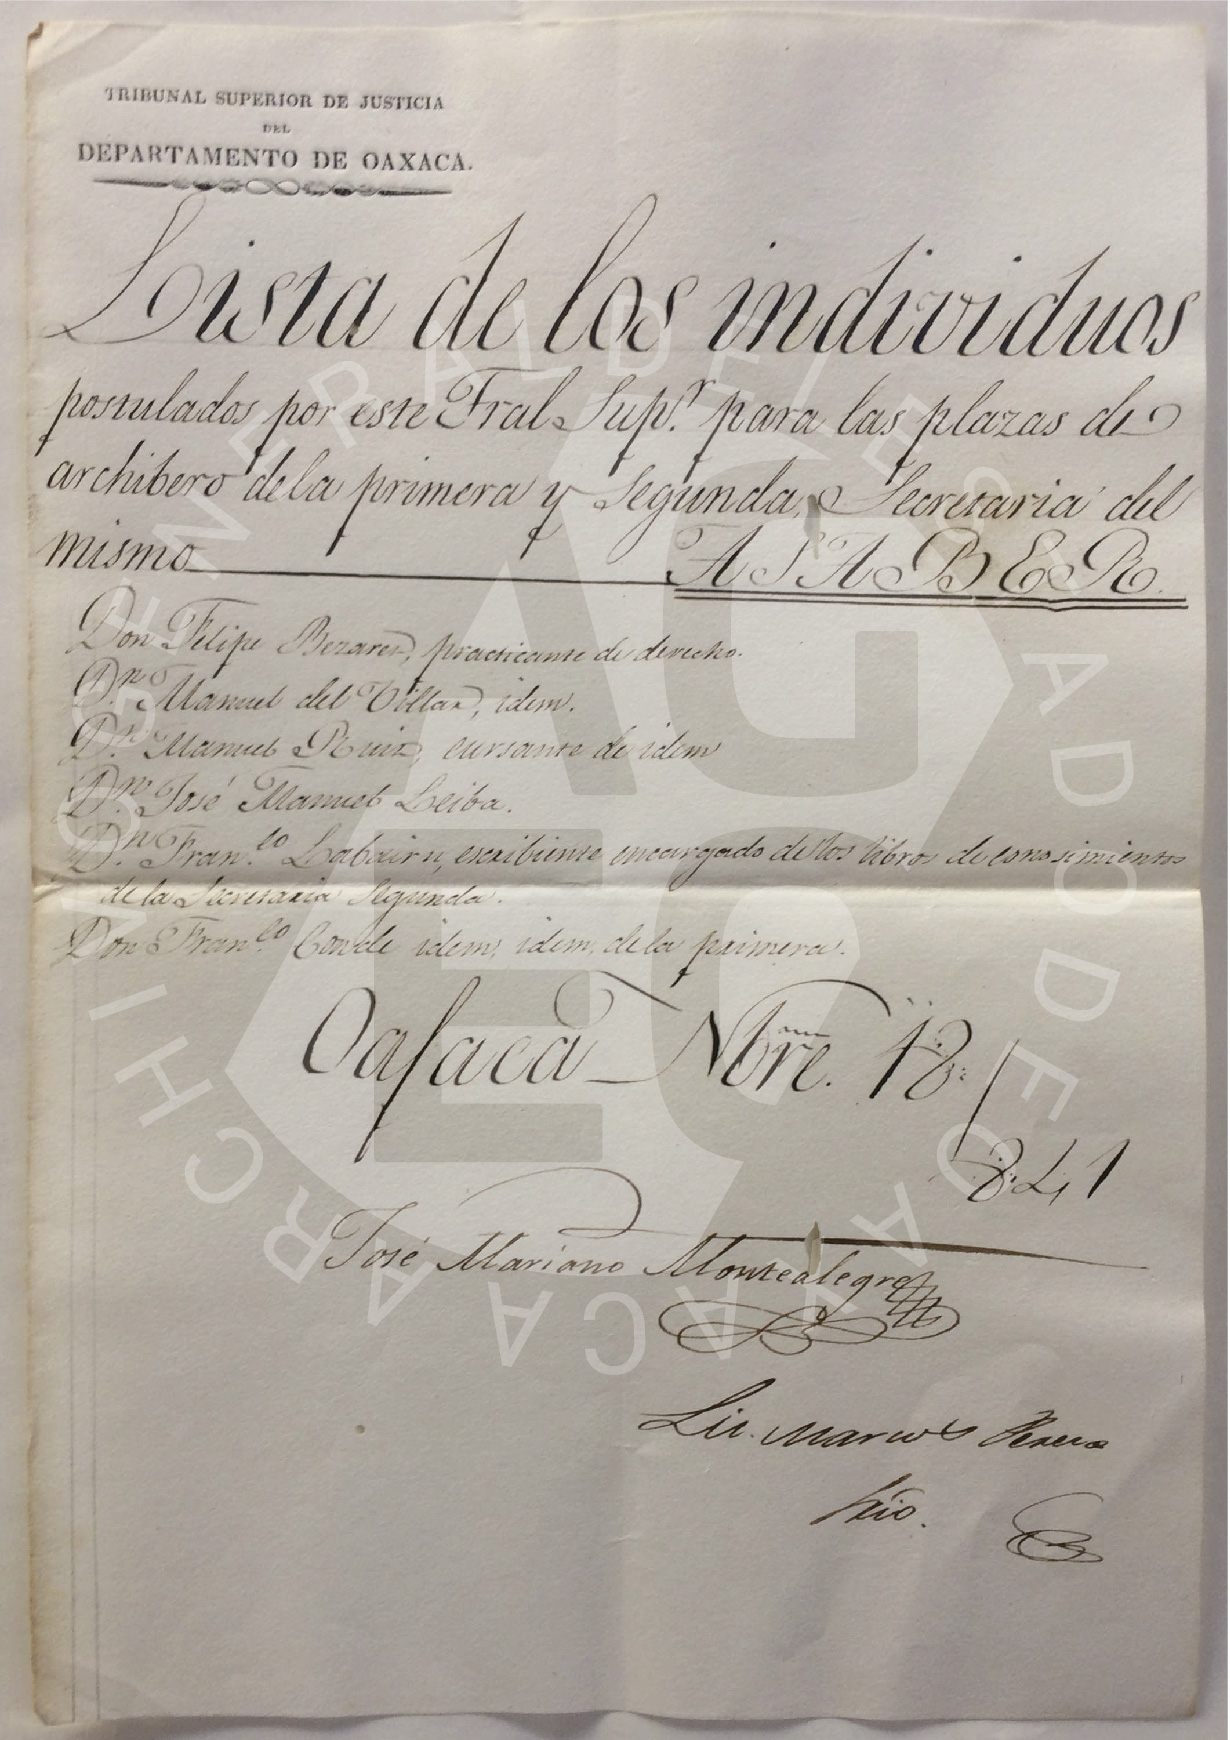 TRIBUNAL SUPERIOR DE JUSTICIA
DEL
DEPARTAMENTO DE OAXACA.
Lista de los individuos
postulados por este Tral Sup.r para las plazas de
archibero de la primera y segunda, Secretaria del
mismo A SABER.
Don Felipe Bezares, practicante de derecho.
D.n Manuel del Villar, idem.
D.n Manuel Ruiz, cursante de idem
D.n José Manuel Leiba.
D.n Fran.co Labairu, escribiente encargado de los libros de conosimientos
de la Secretaria segunda.
Don Fran.co Conde idem, idem, de la primera.
Oajaca Nbre. 18
841
José Mariano Montealegre
Lic. Marcos
Srio.
ARCHIVO GENERAL DEL ESTADO DE OAXACA
AGEO